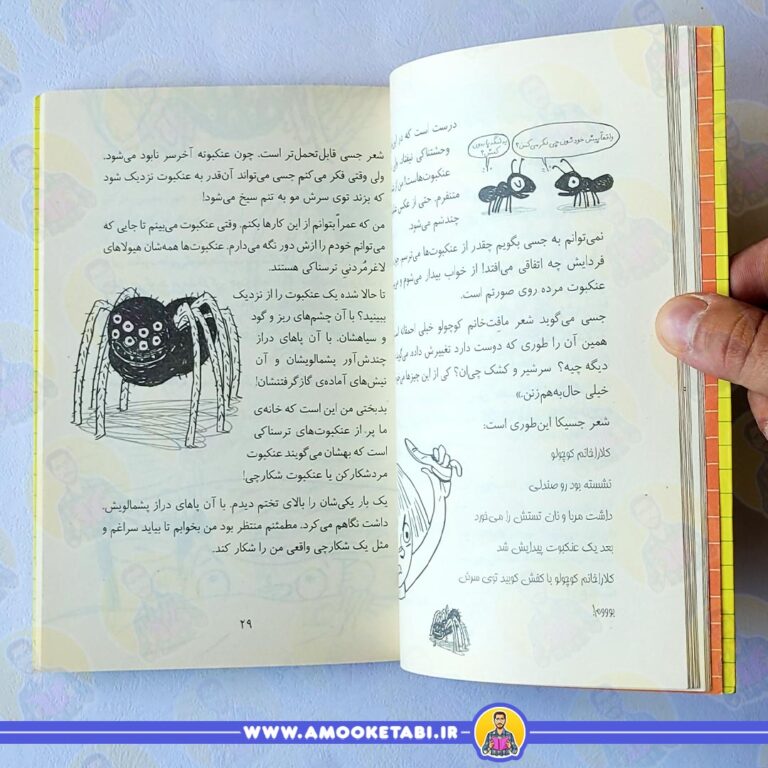 واقعاً پیش خودشون چی فکر می‌کنن؟
درست است که در این
وحشتناکی نیفتاد، ولی
عنکبوت‌هاست! من از
متنفرم. حتی از عکس
چندشم می‌شود.
نمی‌توانم به جسی بگویم چقدر از عنکبوت‌ها می‌ترسم چون
فردایش چه اتفاقی می‌افتد! از خواب بیدار می‌شوم و
عنکبوت مرده روی صورتم است.
جسی می‌گوید شعر مافت‌خانم کوچولو خیلی احمقانه
همین آن را طوری که دوست دارد تغییرش داده می‌گوید
دیگه چیه؟ سرشیر و کشک چی‌ان؟ کی از این چیزها
خیلی حال‌به‌هم‌زنن.»
شعر جسیکا این‌طوری است:
کلاراخانم کوچولو
نشسته بود رو صندلی
داشت مربا و نان تستش را می‌خورد
بعد یک عنکبوت پیدایش شد
کلاراخانم کوچولو با کفش کوبید توی سرش
بوووم!
شعر جسی قابل‌تحمل‌تر است. چون عنکبوته آخرسر نابود می‌شود.
ولی وقتی فکر می‌کنم جسی می‌تواند آن‌قدر به عنکبوت نزدیک شود
که بزند توی سرش مو به تنم سیخ می‌شود!
من که عمراً بتوانم از این کارها بکنم. وقتی عنکبوت می‌بینم تا جایی که
می‌توانم خودم را ازش دور نگه می‌دارم. عنکبوت‌ها همه‌شان هیولاهای
لاغرمُردنیِ ترسناکی هستند.
تا حالا شده یک عنکبوت را از نزدیک
ببینید؟ با آن چشم‌های ریز و گود
و سیاهشان. با آن پاهای دراز
چندش‌آور پشمالویشان و آن
نیش‌های آماده‌ی گازگرفتنشان!
بدبختی من این است که خانه‌ی
ما پر از عنکبوت‌های ترسناکی
است که بهشان می‌گویند عنکبوت
مردشکارکن یا عنکبوت شکارچی!
یک بار یکی‌شان را بالای تختم دیدم. با آن پاهای دراز پشمالویش.
داشت نگاهم می‌کرد. مطمئنم منتظر بود من بخوابم تا بیاید سراغم و
مثل یک شکارچی واقعی من را شکار کند.
۲۹
WWW.AMOOKETABI.IR